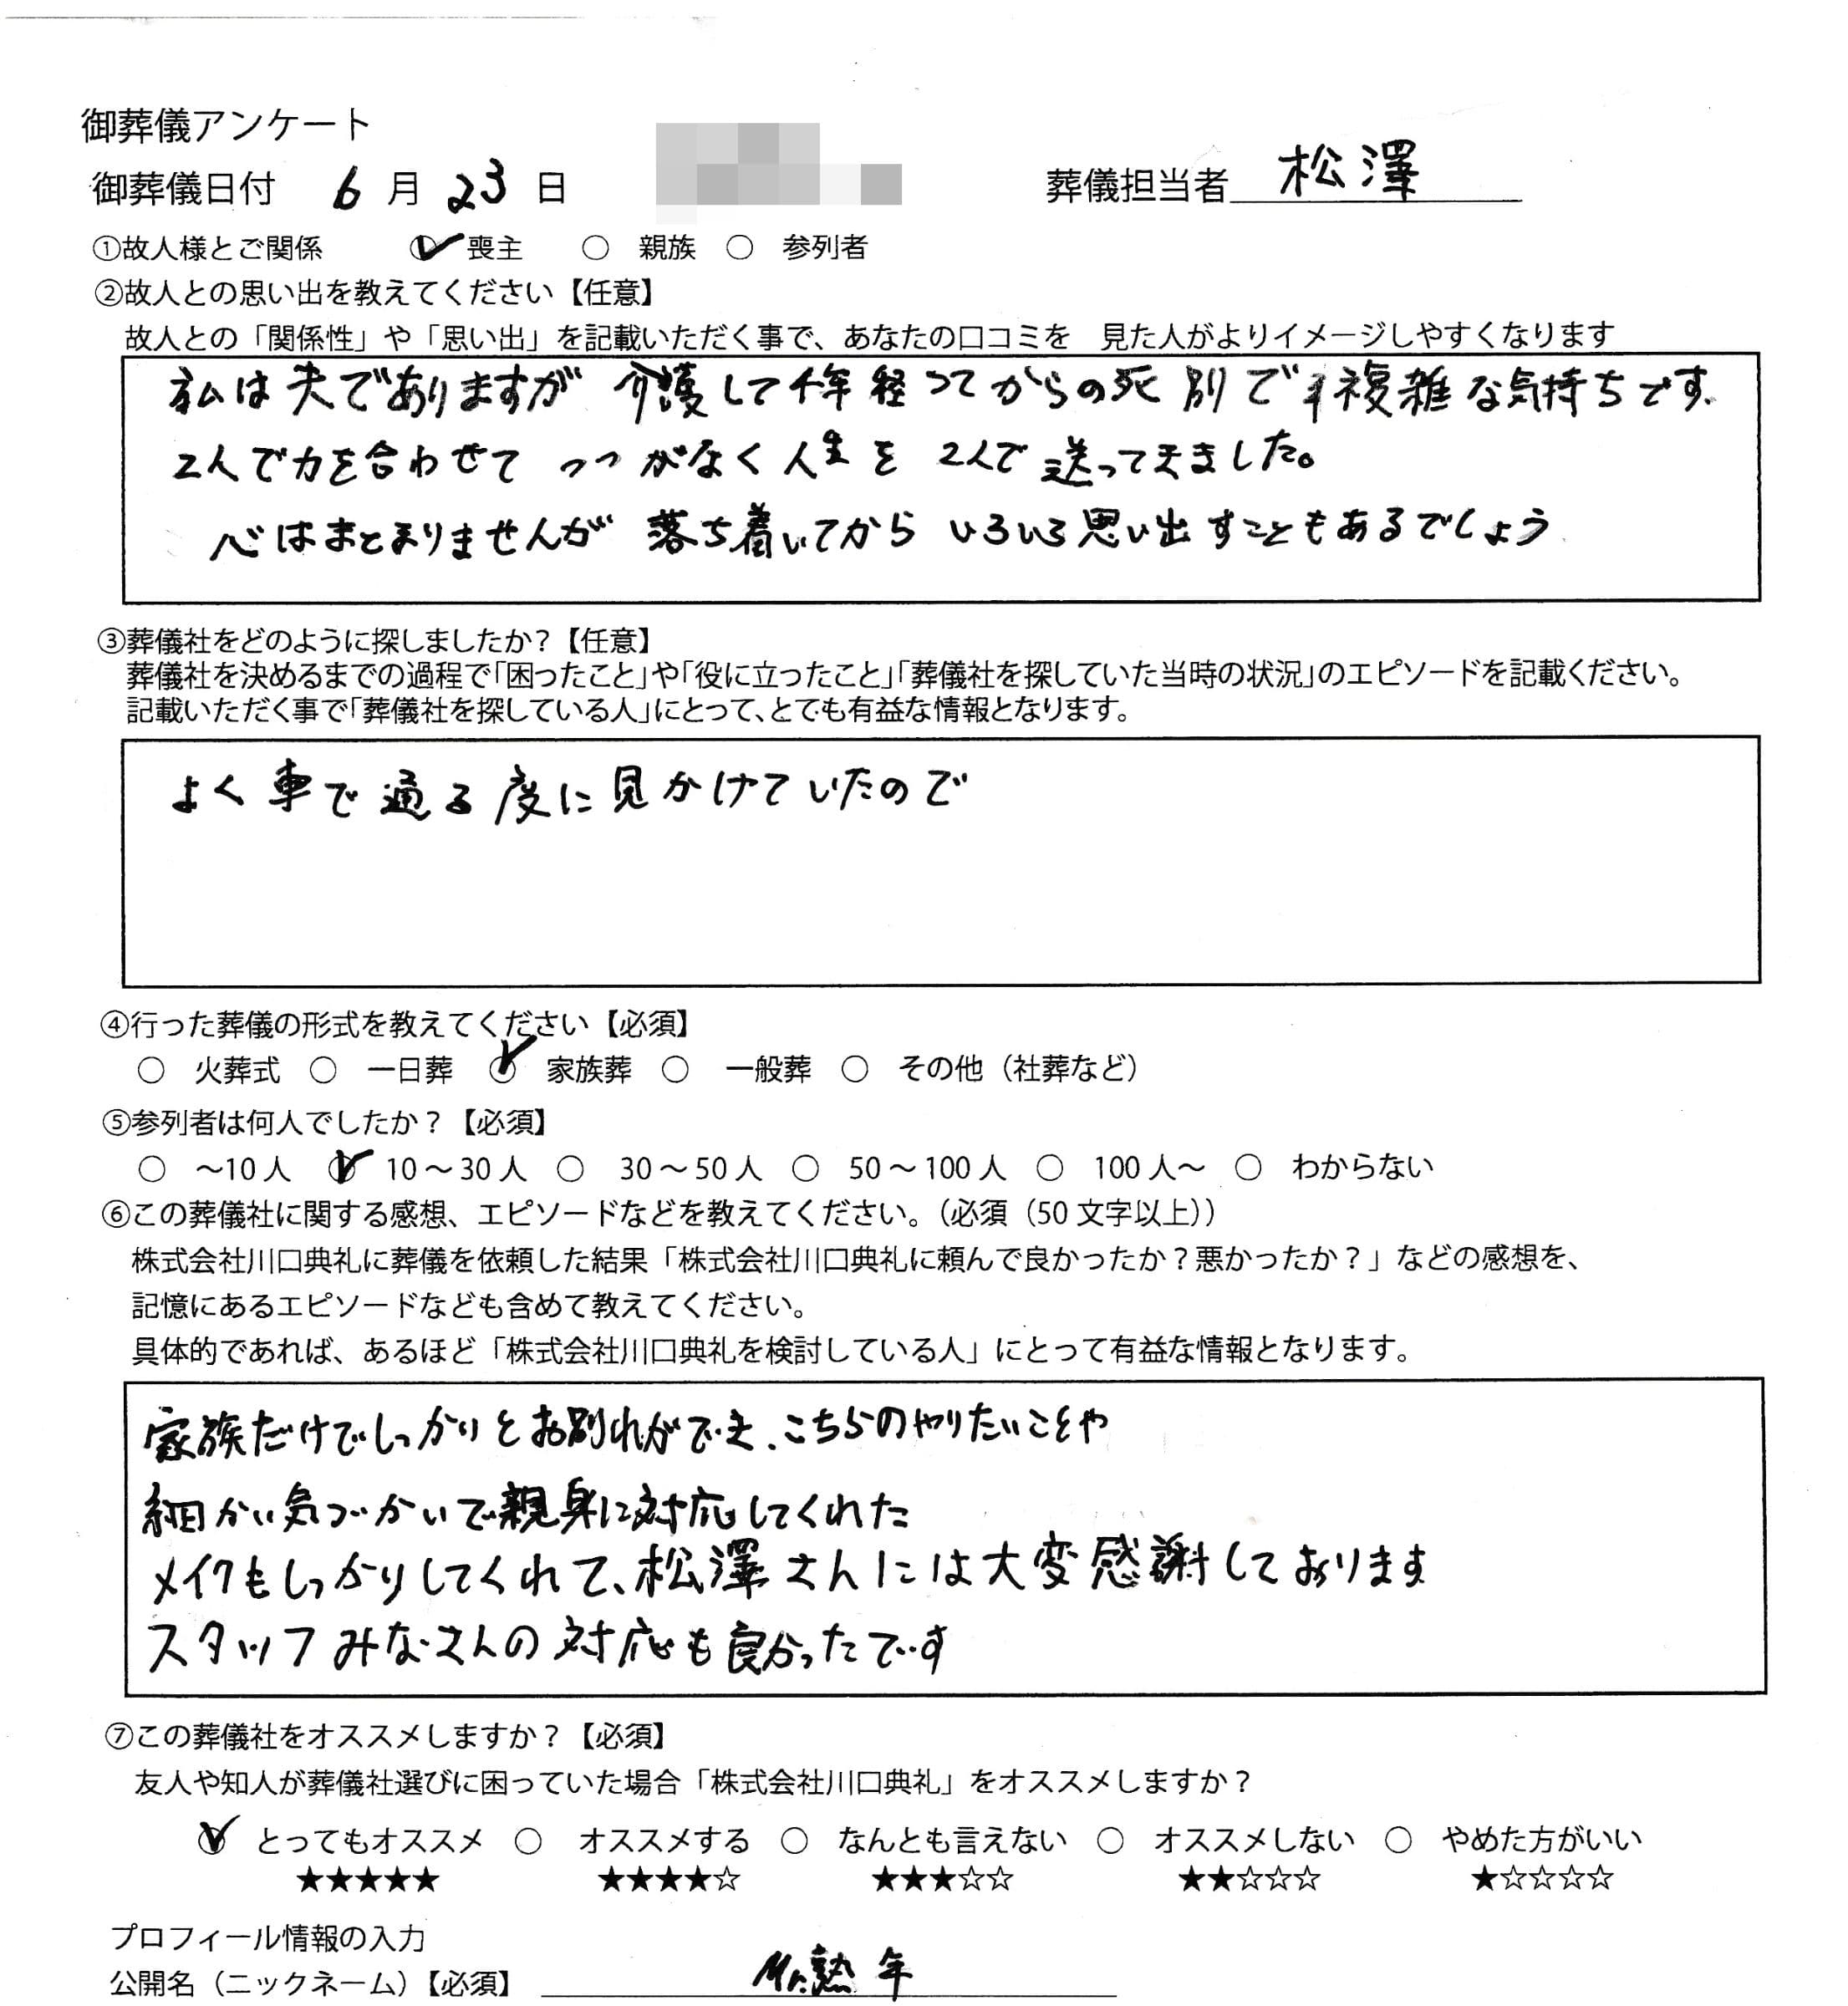 御葬儀アンケート
御葬儀日付 6 月 23 日 葬儀担当者 松澤
①故人様とご関係 ○ 喪主 ○ 親族 ○ 参列者
②故人との思い出を教えてください【任意】
故人との「関係性」や「思い出」を記載いただく事で、あなたの口コミを 見た人がよりイメージしやすくなります
私は夫でありますが 介護して 年経ってからの死別で 複雑な気持ちです.
2人で力を合わせて つつがなく人生を 2人で送ってきました。
心はまとまりませんが 落ち着いてから いろいろ思い出すこともあるでしょう
③葬儀社をどのように探しましたか?【任意】
葬儀社を決めるまでの過程で「困ったこと」や「役に立ったこと」「葬儀社を探していた当時の状況」のエピソードを記載ください。
記載いただく事で「葬儀社を探している人」にとって、とても有益な情報となります。
よく車で通る度に見かけていたので
④行った葬儀の形式を教えてください【必須】
○ 火葬式 ○ 一日葬 ○ 家族葬 ○ 一般葬 ○ その他(社葬など)
⑤参列者は何人でしたか?【必須】
○ ~10人 ○ 10~30人 ○ 30~50人 ○ 50~100人 ○ 100人~ ○ わからない
⑥この葬儀社に関する感想、エピソードなどを教えてください。(必須(50文字以上))
株式会社川口典礼に葬儀を依頼した結果「株式会社川口典礼に頼んで良かったか?悪かったか?」などの感想を、
記憶にあるエピソードなども含めて教えてください。
具体的であれば、あるほど「株式会社川口典礼を検討している人」にとって有益な情報となります。
家族だけでしっかりとお別れができ、こちらのやりたいことや
細かい気づかいで親身に対応してくれた
メイクもしっかりしてくれて、松澤さんには大変感謝しております
スタッフみなさんの対応も良かったです
⑦この葬儀社をオススメしますか?【必須】
友人や知人が葬儀社選びに困っていた場合「株式会社川口典礼」をオススメしますか?
○ とってもオススメ ○ オススメする ○ なんとも言えない ○ オススメしない ○ やめた方がいい
★★★★★ ★★★★☆ ★★★☆☆ ★★☆☆☆ ★☆☆☆☆
プロフィール情報の入力
公開名(ニックネーム)【必須】 Mr.熟年